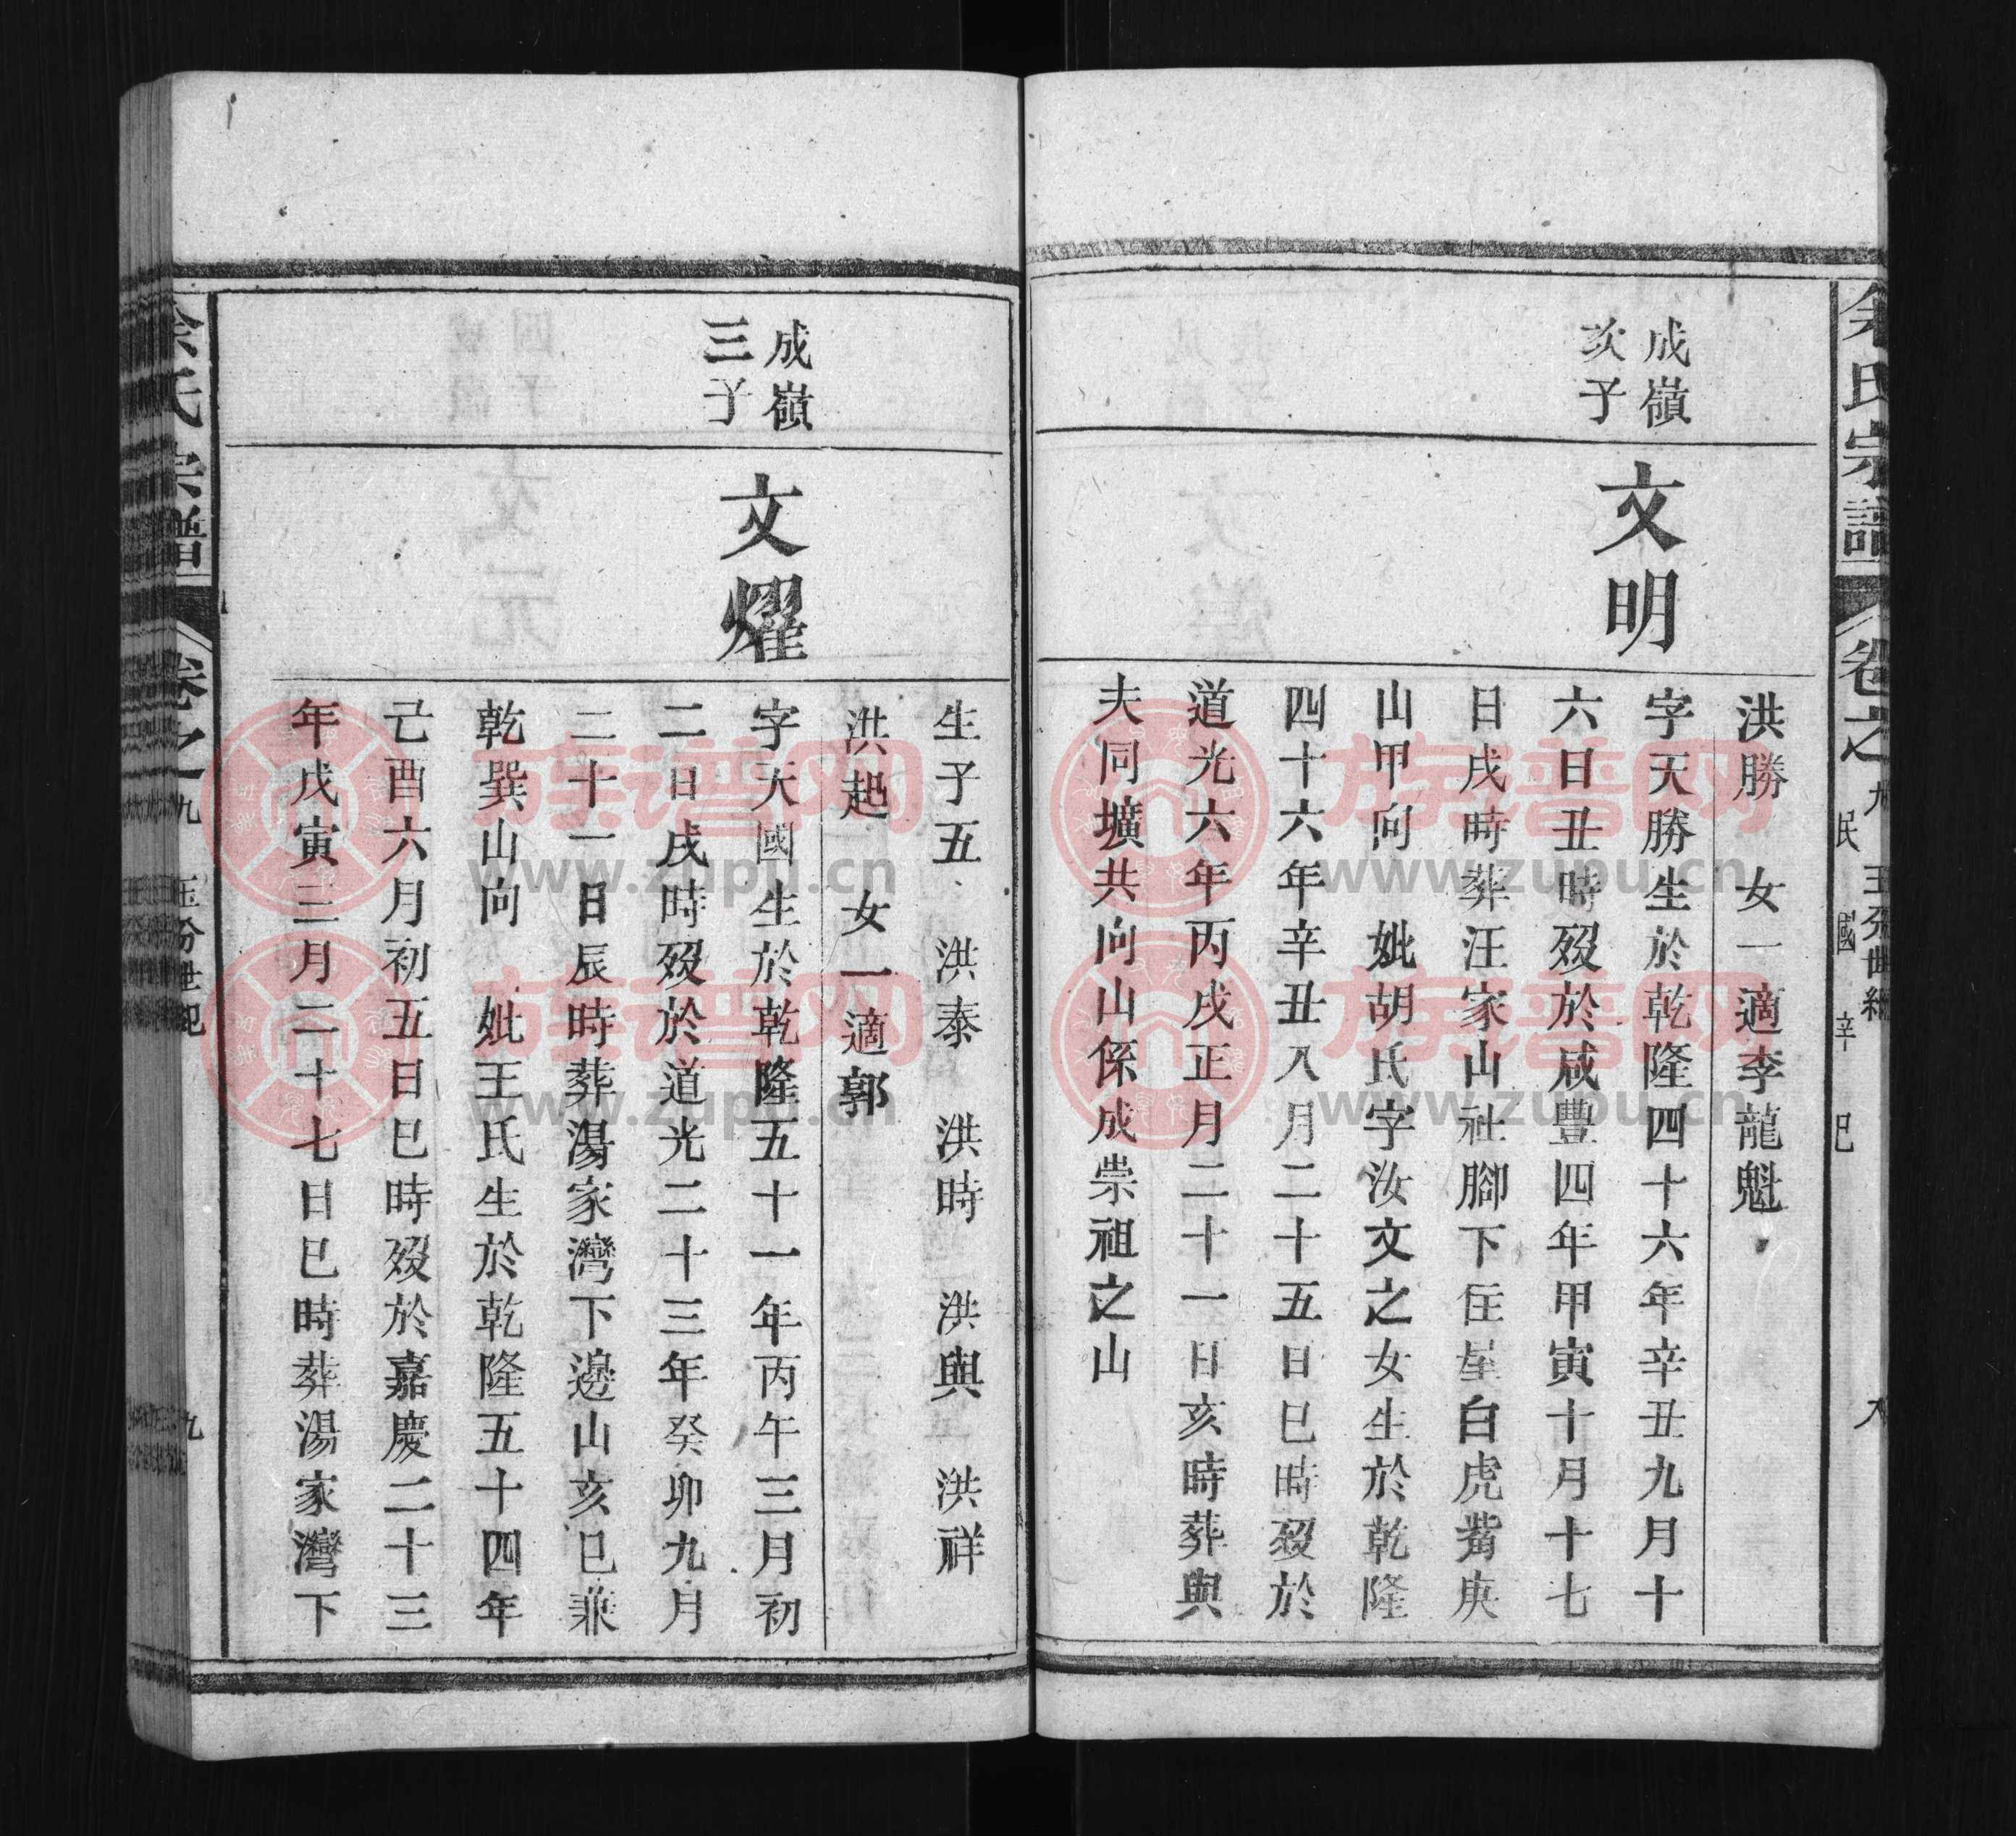 余氏宗譜
卷之九
民國辛巳
八
成嶺
次子
文明
洪勝　女一適李龍魁
字天勝生於乾隆四十六年辛丑九月十
六日丑時歿於咸豐四年甲寅十月十七
日戌時葬汪家山社腳下伾星白虎嘴庚
山甲向　妣胡氏字汝文之女生於乾隆
四十六年辛丑八月二十五日巳時歿於
道光六年丙戌正月二十一日亥時葬與
夫同壙共向山係成崇祖之山
成嶺
三子
文燿
生子五　洪泰　洪時　洪興　洪祥
洪起　女一適郭
字天國生於乾隆五十一年丙午三月初
二日戌時歿於道光二十三年癸卯九月
二十一日辰時葬湯家灣下邊山亥巳兼
乾巽山向　妣王氏生於乾隆五十四年
己酉六月初五日巳時歿於嘉慶二十三
年戊寅三月二十七日巳時葬湯家灣下
余氏宗譜
卷之九
玉分世紀
九
族谱网
www.zupu.cn
族谱网
www.zupu.cn
族谱网
www.zupu.cn
族谱网
www.zupu.cn